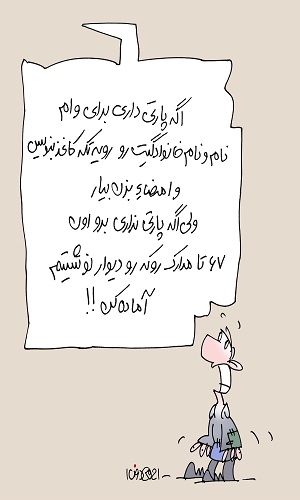 اگه پارتی داری برای وام
نام و نام خانوادگیت رو رویه تکه کاغذ بنویس
و امضاءِ بزن بیار
ولی اگه پارتی نداری برو اون
۶۷ تا مدارک روکه رو دیوار نوشتیم
آماده کن !!